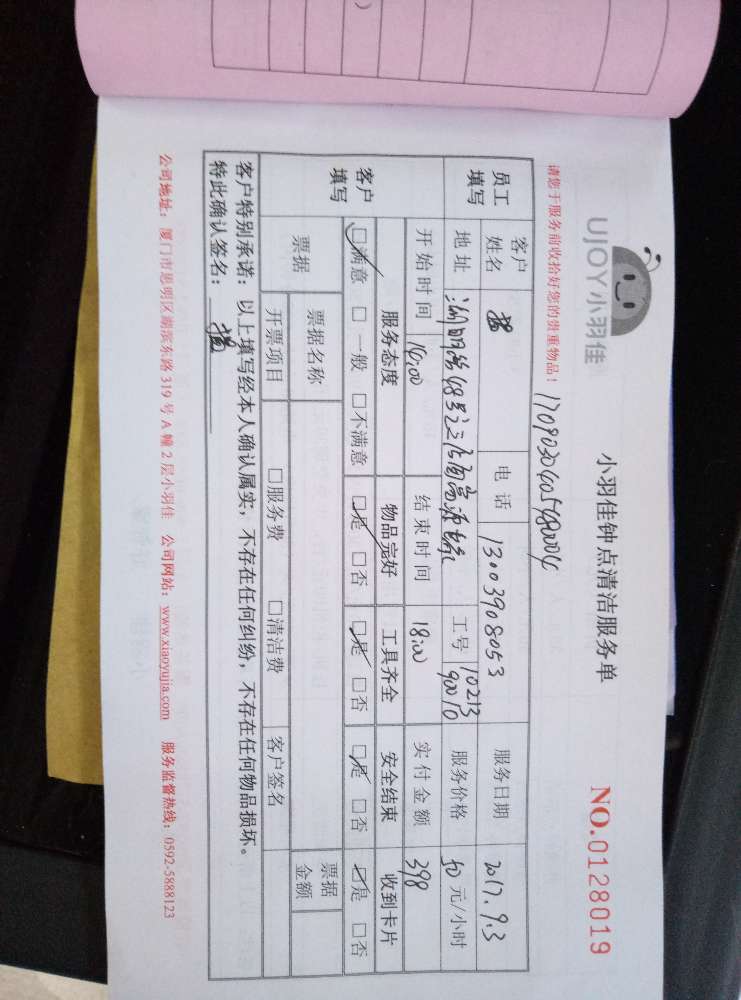 UJOY小羽佳
小羽佳钟点清洁服务单
NO.0128019
请您于服务前收拾好您的贵重物品！
员工填写
客户姓名
电话 13003908053
服务日期 2017.9.3
地址
工号 10213 90010
服务价格 50元/小时
开始时间 14:00
结束时间 18:00
实付金额 398
客户填写
服务态度 物品完好 工具齐全 安全结束 收到卡片
☑满意 □一般 □不满意 ☑是 □否 ☑是 □否 ☑是 □否 ☑是 □否
票据 票据名称 票据金额
开票项目 □服务费 □清洁费 客户签名
客户特别承诺：以上填写经本人确认属实，不存在任何纠纷，不存在任何物品损坏。
特此确认签名：
公司地址：厦门市思明区湖滨东路319号A幢2层小羽佳 公司网站：www.xiaoyujia.com 服务监督热线：0592-5888123